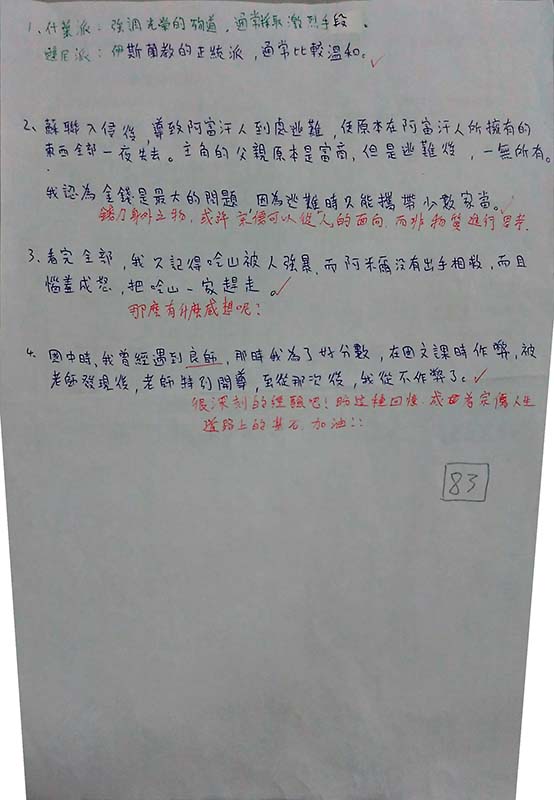 1、什葉派：強調光榮的殉道，通常採取激烈手段。
遜尼派：伊斯蘭教的正統派，通常比較溫和。
2、蘇聯入侵後，導致阿富汗人到處逃難，使原本在阿富汗人所擁有的
東西全部一夜失去。主角的父親原本是富商，但是逃難後，一無所有。
我認為金錢是最大的問題，因為逃難時只能攜帶少數家當。
錢乃身外之物，或許 可以從人的面向，而非物質進行思考.
3、看完全部，我只記得哈山被人強暴，而阿米爾沒有出手相救，而且
惱羞成怒，把哈山一家趕走。
那麼有什麼感想呢？
4、國中時，我曾經遇到良師，那時我為了好分數，在國文課時作弊，被
老師發現後，老師特別開導，至從那次後，我從不作弊了。
很深刻的經驗吧！ 這種回憶 人生
道路上的基石 加油!!
83